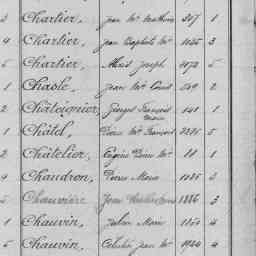 3 Chartier, Jean Me Mathurin 307 1
4 Chartier, Jean Baptiste Me 1045 3
5 Chartier, Alexis Joseph 4072 5
1 Chasle, Jean Me Louis 549 2
2 Châteignier, Georges François Marie 141 1
1 Châtel, Pierre Me François 5
2 Châtelier, Eugène Pierre Me 11 1
4 Chaudron, Pierre Marie 1085 3
5 Chauvière, Jean 1886 3
1 Chauvin, Julien Marie 4
5 Chauvin, Célestin Jean Me 1924 4